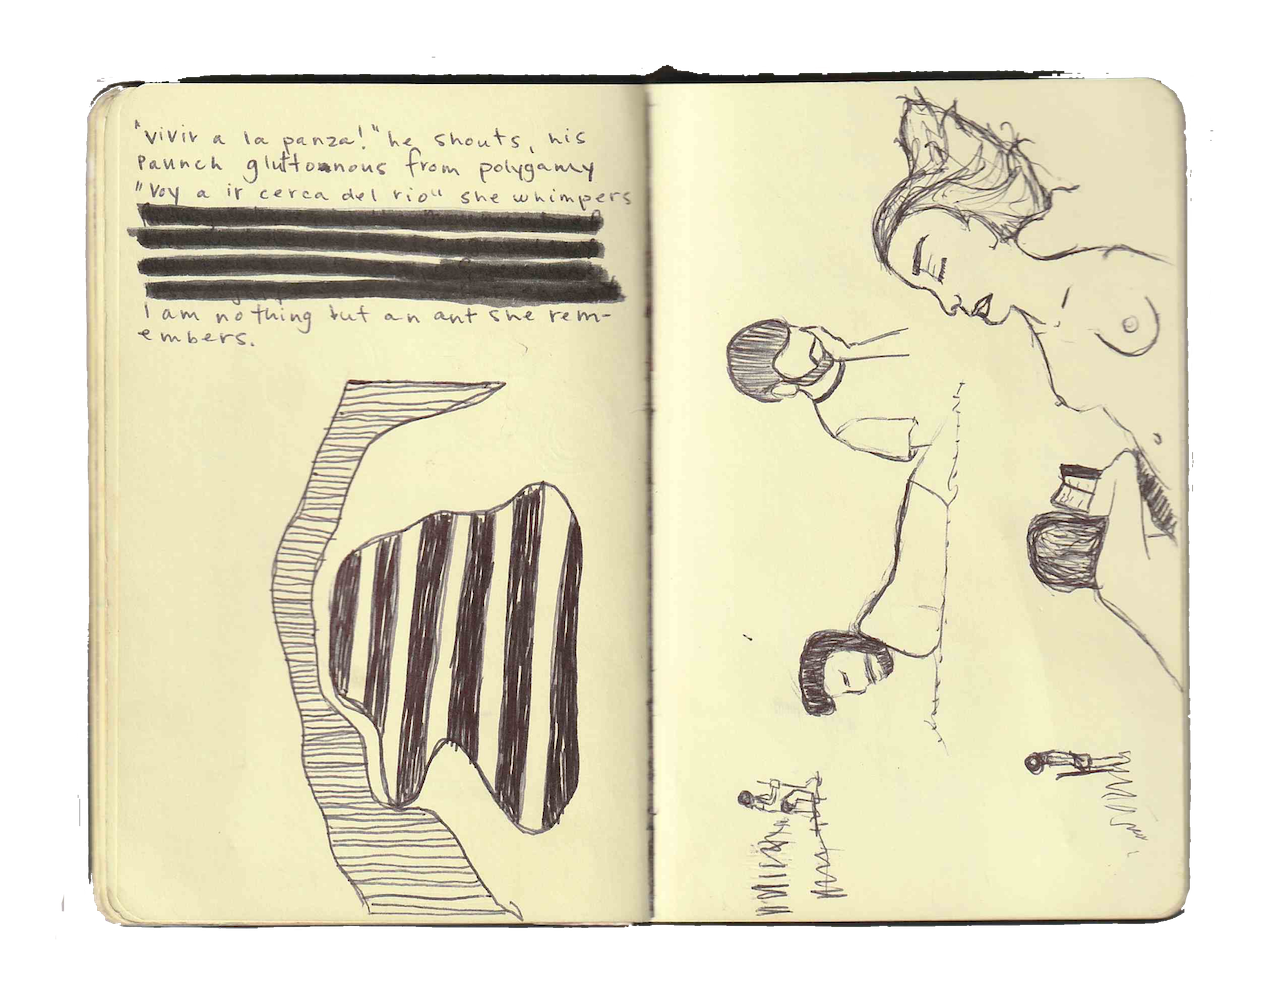 "vivir a la panza!" he shouts, his
paunch gluttonnous from polygamy
"voy a ir cerca del rio" she whimpers
I am nothing but an ant she rem-
embers.